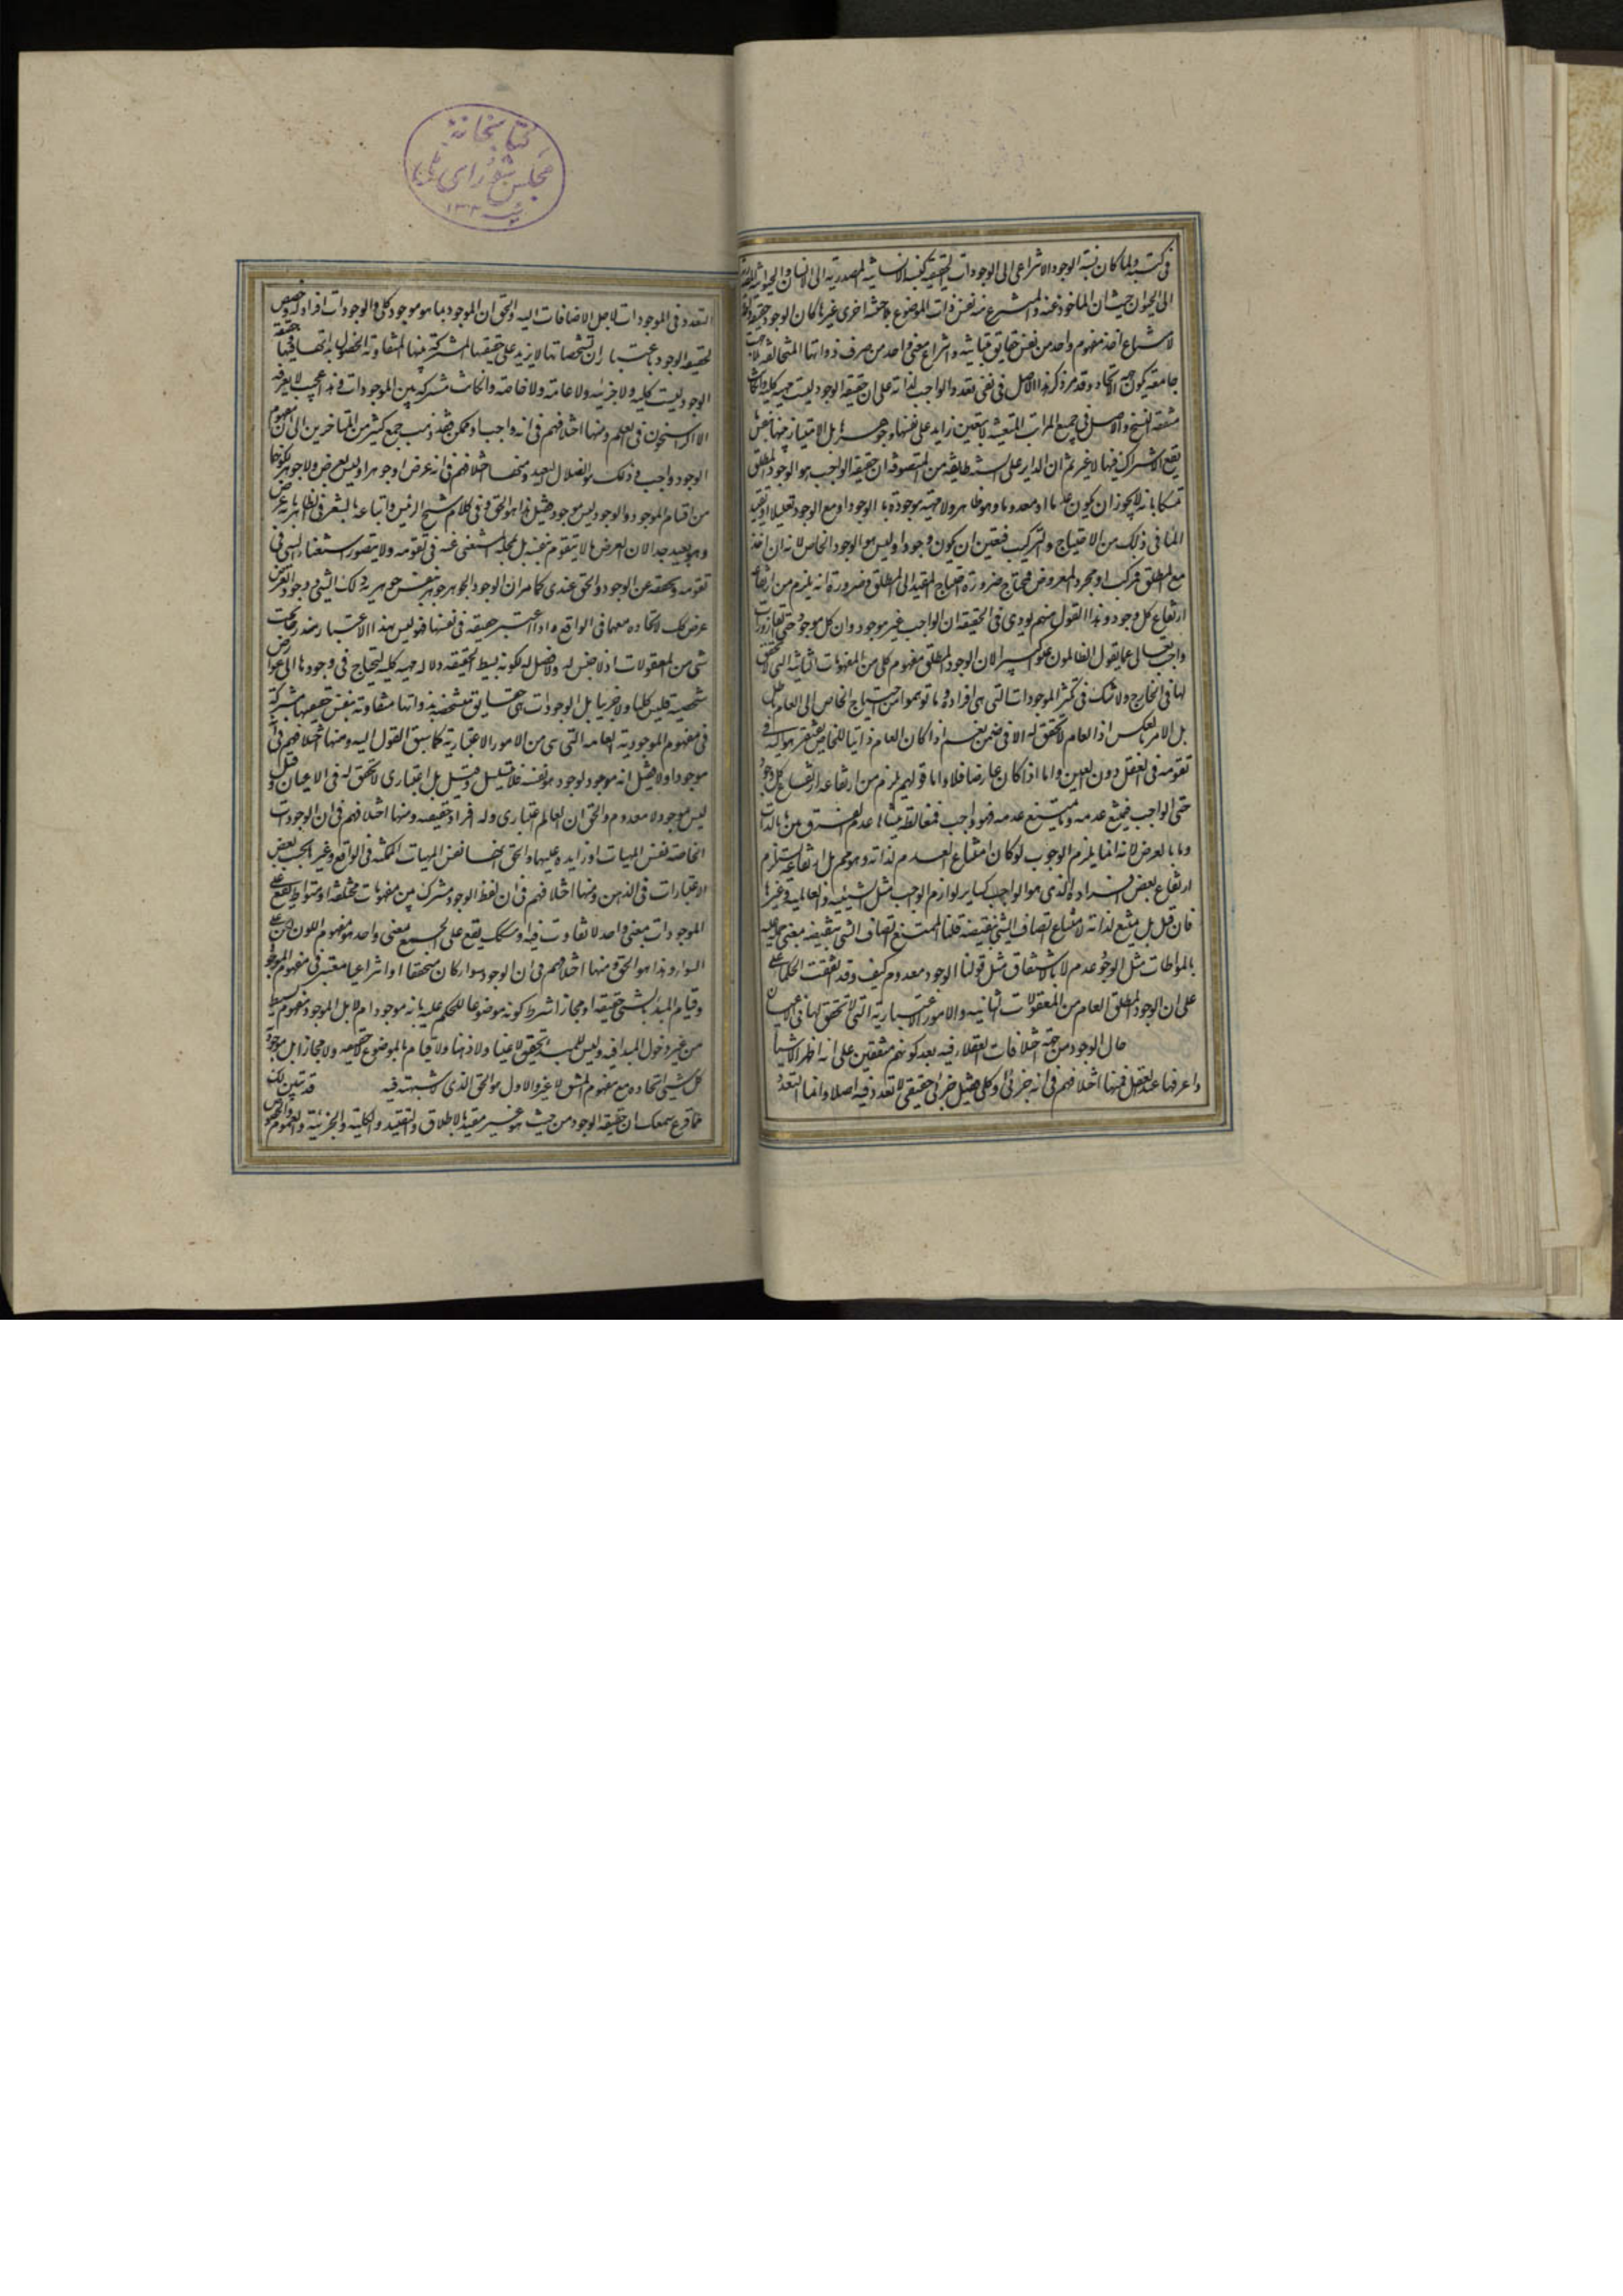 فی کتبه ولما کان نسبة الوجود الانتزاعی الی الوجودات الحقیقیه کنسبة الانسانیة المصدریه الی الانسان والحیوانیه المصدریه
الی الحیوان حیث ان الماخوذ عنه والمنتزع منه نفس ذوات الموضوع بلا حیثیة اخری غیرها کان الوجود حقیقة واحدة
لامتناع اخذ مفهوم واحد من نفس حقایق متباینه وانتزاع معنی واحد من صرف ذواتها المتخالفه بلا جهة
جامعة یکون جهه الاتحاد وقد مر ذکر هذا الاصل فی نفی تعدد الواجب لذاته علی ان حقیقة الوجود لیست جهه کلیه وان کانت
متفقه السنخ والاصل فی جمیع المراتب المتعینه لا بتعین زاید علی نفسها وجوهرها بل الامتیاز فیها بنفس ما
یقع الاشتراک فیها لا غیر ثم ان الدایر علی السنة طایفه من المتصوفه ان حقیقة الواجب هو الوجود المطلق
تمسکا بانه لا یجوز ان یکون عدما او معدوما وهو ظاهر ولا مهیه موجودة بالوجود او مع الوجود تعلیلا او تقیدا
لما فی ذلک من الاحتیاج والترکیب فتعین ان یکون وجودا ولیس هو الوجود الخاص لانه ان اخذ
مع المطلق فمرکب او مجرد المعروض فمحتاج ضرورة احتیاج المقید الی المطلق وضرورة انه یلزم من ارتفاعه
ارتفاع کل وجود وهذا القول منهم یودی فی الحقیقة ان الواجب غیر موجود وان کل موجود حتی القاذورات
واجب تعالی عما یقول الظالمون علوا کبیرا لان الوجود المطلق مفهوم کلی من المعقولات الثانیه التی لا تحقق
لها فی الخارج ولا شک فی تکثر الموجودات التی هی افراده وما توهموا من احتیاج الخاص الی العام باطل
بل الامر بالعکس اذ العام لا تحقق له الا فی ضمن الخاص نعم اذا کان العام ذاتیا للخاص یفتقر هو الیه فی
تقومه فی العقل دون العین واما اذا کان عارضا فلا واما قولهم یلزم من ارتفاعه ارتفاع کل وجود
حتی الواجب فیمتنع عدمه وما یمتنع عدمه فهو واجب فمغالطه منشاءها عدم الفرق بین ما بالذات
وما بالعرض لانه انما یلزم الوجوب لو کان امتناع العدم لذاته وهو مم بل ارتفاعه یستلزم
ارتفاع بعض افراده الذی هو الواجب کسایر لوازم الواجب مثل الشیئیه والعالمیه وغیرها
فان قیل بل یمتنع لذاته لامتناع اتصاف الشی بنقیضه قلنا الممتنع اتصاف الشی بنقیضه بمعنی حمله علیه
بالمواطات مثل الوجود عدم لا بالاشتقاق مثل قولنا الوجود معدوم کیف وقد اتفقت الحکماء
علی ان الوجود المطلق العام من المعقولات الثانیه والامور الاعتباریه التی لا تحقق لها فی الاعیان
حال الوجود من جهة اختلافات العقلاء فیه بعد کونهم متفقین علی انه اظهر الاشیا
واعرفها عند العقل فمنها اختلافهم فی انه جزئی او کلی فقیل جزئی حقیقی لا تعدد فیه اصلا وانما التعدد
التعدد فی الموجودات لاجل الاضافات الیه والحق ان الموجود بما هو موجود کلی والوجودات افراد له وحصص
لحقیقة الوجود باعتبار ان تشخصاتها لا یزید علی حقیقتها المشترکة بینها المتفاوته الحصول بذاتها فیها حقیقة
الوجود لیست کلیه ولا جزئیه ولا عامة ولا خاصه وان کانت مشترکه بین الموجودات وهذا عجیب لا یعرفه
الا الراسخون فی العلم ومنها اختلافهم فی انه واجب او ممکن فقد ذهب جمع کثیر من المتاخرین الی ان مفهوم
الوجود واجب وذلک هو الضلال البعید ومنها اختلافهم فی انه عرض او جوهر او لیس بعرض ولا جوهر لکونهما
من اقسام الموجود والوجود لیس موجود فقیل هذا هو الحق وفی کلام شیخ الرئیس واتباعه ما یشعر فی الظاهر بانه عرض
وهو بعید جدا لان العرض ما لا یتقوم بنفسه بل بمحله المستغنی عنه فی تقومه ولا یتصور استغناء الشی فی
تقومه وتحققه عن الوجود والحق عندی کما مر ان الوجود الجوهر جوهر بنفس جوهریه ذلک الشی ووجود العرض
عرض کک لاتحاده معهما فی الواقع واذا اعتبر حقیقه فی نفسها فهو لیس بهذا الاعتبار مندرجا تحت
شی من المعقولات اذ لا جنس له ولا فصل له لکونه بسیط الحقیقه ولا له مهیه کلیه لیحتاج فی وجودها الی عوارض
شخصیه فلیس کلیا ولا جزئیا بل الوجودات هی حقایق متشخصه بذواتها متفاوته بنفس حقیقتها مشترکة
فی مفهوم الموجودیه العامه التی هی من الامور الاعتباریه کما سبق القول الیه ومنها اختلافهم فی انه
موجود اولا فقیل انه موجود بوجود هو نفسه فلا یتسلسل وقیل بل اعتباری لا تحقق له فی الاعیان وقیل
لیس بموجود ولا معدوم والحق ان العام اعتباری وله افراد حقیقیه ومنها اختلافهم فی ان الوجودات
الخاصه نفس المهیات او زایده علیها والحق انها نفس المهیات الممکنه فی الواقع وغیرها بحسب بعض
الاعتبارات فی الذهن ومنها اختلافهم فی ان لفظ الوجود مشترک بین مفهومات مختلفه او متواط یقع علی
الموجودات بمعنی واحد لا تفاوت فیه او مشکک یقع علی الجمیع بمعنی واحد هو مفهوم الکون
السوا وهذا هو الحق ومنها اختلافهم فی ان الوجود سواء کان متحققا او انتزاعیا معتبر فی مفهوم الموجود
وقیام المبدء بالشی حقیقه او مجازا شرط کونه موضوعا للحکم علیه بانه موجود ام لا بل الموجود مفهوم بسیط
من غیر دخول المبدا فیه ولیس للمبدء تحقق لا عینا ولا ذهنا ولا قیام بالموضوع لا حقیقه ولا مجازا بل موجودیة
کل شی اتحاده مع مفهوم المشتق لا غیر والاول هو الحق الذی لا شبهة فیه قد تبین لک
مما قرع سمعک ان حقیقة الوجود من حیث هو غیر مقید بالاطلاق والتقیید والکلیة والجزئیة والعموم والخصوص
کتابخانهٔ
مجلس شورای ملی